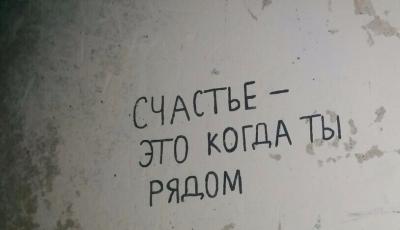 СЧАСТЬЕ –
ЭТО КОГДА ТЫ
РЯДОМ